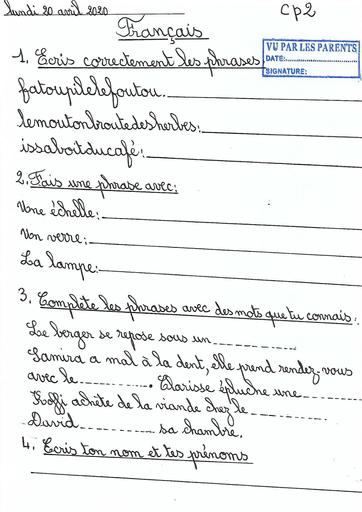 lundi 20 avril 2020
CP2
Français
VU PAR LES PARENTS
DATE:
SIGNATURE:
1. Ecris correctement les phrases
fatoupilelefoutou.
lemoutonbroutedesherbes:
issaboitducafé:
2. Fais une phrase avec:
Une échelle:
Un verre:
La lampe:
3. Complète les phrases avec des mots que tu connais:
Le berger se repose sous un
Samira a mal à la dent, elle prend rendez-vous
avec le ---------. Clarisse épluche une ---------
Koffi achète de la viande chez le ---------
David --------- sa chambre.
4. Ecris ton nom et tes prénoms